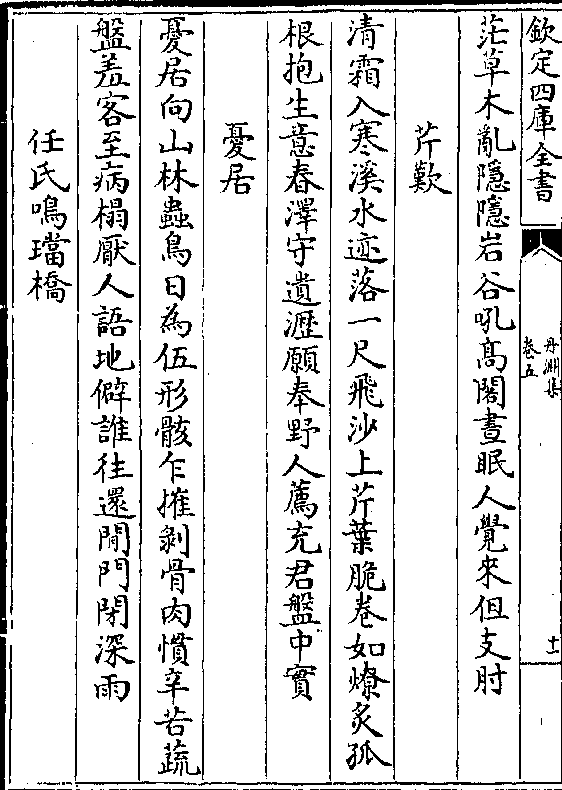 欽定四庫全書
丹淵集
卷五
十
茫草木亂隱隱岩谷吼高閣晝眠人覺來但支肘
芹歎
清霜入寒溪水迹落一尺飛沙上芹葉脆卷如燎炙孤
根抱生意春澤守遺瀝願奉野人薦充君盤中實
憂居
憂居向山林蟲鳥日為伍形骸乍摧剝骨肉慣辛苦蔬
盤羞客至病榻厭人語地僻誰往還閒門閉深雨
任氏鳴璫橋